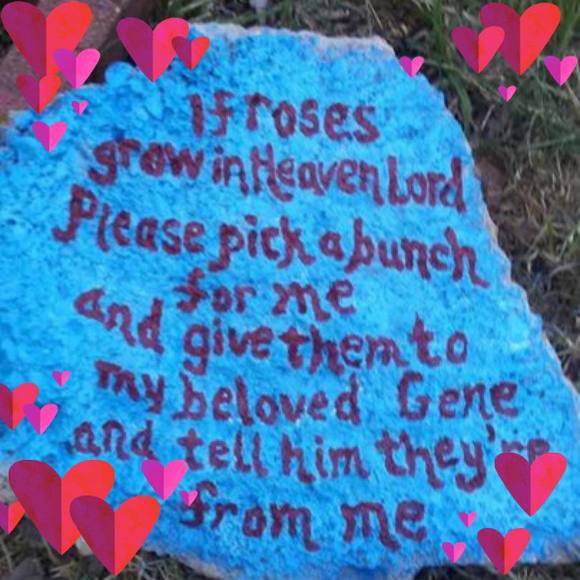 If roses
grow in Heaven Lord
Please pick a bunch
for me
and give them to
my beloved Gene
and tell him they're
from me